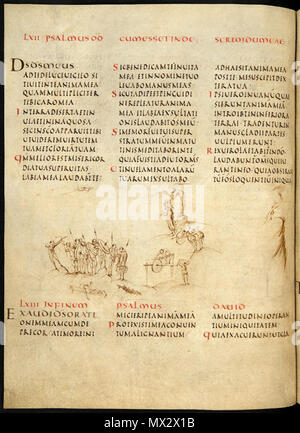 LXII PSALMUS DD
DSDSMEUS
ADTEDELUCEUIGILO SI
TIUITINTEANIMAMEA
QUAMMULTIPLICITER
TIBICAROMEA
INTERRADESERTAETIN
UIAETINAQUOSA
SICINSCOAPPARUITIBI
UTUIDEREMUIRTUTEM
TUAMETGLORIATUAM
QMMELIORESTMISERICOR
DIATUASUPERUITAS
LABIAMEALAUDABTE
CUMESSETINDE
SICBENEDICAMTEINUITA
MEAETINNOMINETUO
LEUABOMANUSMEAS
SICUTADIPEETPINGUEDI
NEREPLEATURANIMA
MEAETLABIAEXULTATI
ONISLAUDABITOSMEU
SIMEMORFUITUISUPER
STRATUMMEUMINMATU
TINISMEDITABORINTE
QUIAFUISTIADIUTORMS
ETINUELAMENTOALARU
TUARUMEXSULTABO
SERTOIDUMEAE
ADHAESITANIMAMEA
POSTTEMESUSCEPITDEX
TERATUA
IPSIUEROINUANUMQUAE
SIERUNTANIMAMEA
INTROIBUNTININFERIORA
TERRAETRADENTURIN
MANUSGLADIIPARTES
UULPIUMERUNT
REXUEROLAETABITINDO
LAUDABUNTOMSQUIIU
RANTINEOQUIAOBSTRUC
TUESOSLOQUENTIUINIQUA
LXIII INFINEM
PSALMUS
DAUID
EXAUDIDSORATI
ONEMMEAMCUMDE
PRECOR ATIMOREINI
MICIERIPEANIMAMEA
PROTEXISTIMEACONUEN
TUMALIGNANTIUM
AMULTITUDINEOPERAN
TIUMINIQUITATEM
QUIAEXACUERUNT